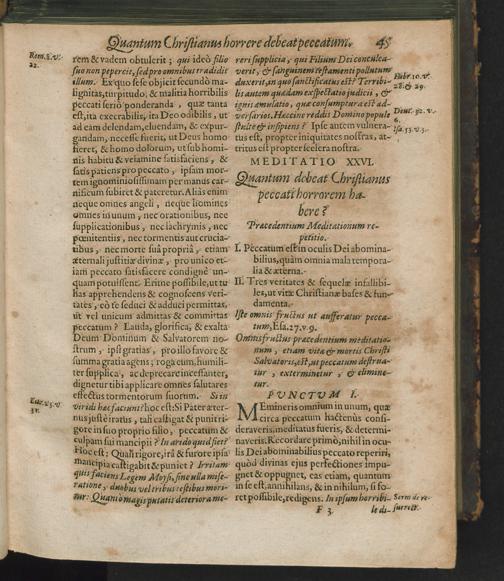 Quantum Christianus horrere debeat peccatum. 45
Rom. 8. v.
32.
rem & vadem obtulerit; qui ideò filio
suo non pepercit, sed pro omnibus tradidit
illum. Ex quo se se objicit secundò ma-
lignitas, turpitudo & malitia horribilis
peccati seriò ponderanda, quæ tanta
est, ita execrabilis, ita Deo odibilis, ut
ad eam delendam, eluendam, & expur-
gandam, necesse fuerit, ut Deus homo
fieret, & homo dolorum, ut sub homi-
nis habitu & velamine satisfaciens, &
satis patiens pro peccato, ipsam mor-
tem ignominiosissimam per manus car-
nificum subiret & pateretur. Aliàs enim
neque omnes angeli, neque homines
omnes in unum, nec orationibus, nec
supplicationibus, nec lachrymis, nec
pœnitentiis, nec tormentis aut crucia-
tibus, nec morte suâ propriâ, etiam
æternali justitiæ divinæ, pro unico et-
iam peccato satisfacere condignè un-
quam potuissent. Eritne possibile, ut tu
has apprehendens & cognoscens veri-
tates, eò te seduci & adduci permittas,
ut vel unicum admittas & committas
peccatum? Lauda, glorifica, & exalta
Deum Dominum & Salvatorem no-
strum, ipsi gratias, pro illo favore &
summa gratia agens; roga eum, humili-
ter supplica, ac deprecare incessanter,
dignetur tibi applicare omnes salutares
effectus tormentorum suorum. Si in
Luc. 23. v.
31.
viridi hæc faciunt? hoc est: Si Pater æter-
nus justè iratus, tali castigat & punit ri-
gore in suo proprio filio, peccatum &
culpam sui mancipii? In arido quid fiet?
Hoc est: Quali rigore, irâ & furore ipsa
mancipia castigabit & puniet? Irritam
quis faciens Legem Moysi, sine ulla mise-
ratione, duobus vel tribus testibus mori-
tur: Quantò magis putatis deteriora me-
reri supplicia, qui Filium Dei conculca-
verit, & sanguinem testamenti pollutum
duxerit, in quo sanctificatus est? Terribi-
Hebr. 10. v.
28. & 29.
lis autem quædam exspectatio judicii, &
ignis æmulatio, quæ consumptura est ad-
versarios. Hæccine reddis Domino popule
Deut. 32. v.
6.
stulte & insipiens? Ipse autem vulnera-
Isa. 53. v. 5.
tus est, propter iniquitates nostras, at-
tritus est propter scelera nostra.
MEDITATIO XXVI.
Quantum debeat Christianus
peccati horrorem ha-
bere?
Præcedentium Meditationum re-
petitio.
I. Peccatum est in oculis Dei abomina-
bilius, quàm omnia mala tempora-
lia & æterna.
II. Tres veritates & sequelæ infallibi-
les, ut vitæ Christianæ bases & fun-
damenta.
Iste omnis fructus ut aufferatur pecca-
tum, Esa. 27. v. 9.
Omnis fructus præcedentium meditatio-
num, etiam vitæ & mortis Christi
Salvatoris, est, ut peccatum destrua-
tur, exterminetur, & elimine-
tur.
PUNCTUM I.
Memineris omnium in unum, quæ
circa peccatum hactenùs consi-
deraveris. meditatus fueris, & determi-
naveris. Recordare primò, nihil in ocu-
lis Dei abominabilius peccato reperiri,
quòd divinas ejus perfectiones impu-
gnet & oppugnet, eas etiam, quantum
in se est, annihilans, & in nihilum, si fo-
ret possibile, redigens. In ipsum horribi-
F 3. le di-